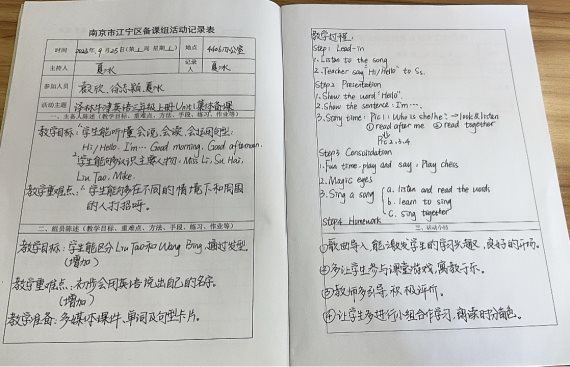 南京市江宁区备课组活动记录表
时间 9月25日(第1周 星期1) 地点 440办公室
主持人 夏冰 记录人 夏冰
参加人员 夏冰
活动主题 译林牛津英语三年级上册Unit1集体备课
一、主备人陈述(教学目标、重难点、方法、手段、练习、作业等)
教学目标:1.学生能听懂、会说、会读、会运用句型:
Hi/Hello. I'm… Good morning. Good afternoon.
2.学生能够认识主要人物:Miss Li, Su Hai,
Liu Tao, Mike.
教学重难点:学生能够在不同的情境下和周围
的人打招呼。
二、组员陈述(教学目标、重难点、方法、手段、练习、作业等)
教学目标:学生能区分Liu Tao和Wang Bing,通过发型。
(增加)
教学重难点:初步会用英语说出自己的名字。
(增加)
教学准备:多媒体课件、单词及句型卡片。
教学过程:
Step1 Lead-in
1. Listen to the song
2. Teacher say "Hi/Hello" to Ss.
Step2 Presentation
1. Show the word "Hello".
2. Show the sentence: I'm…
3. Song time: Pic1: Who is she/he? → look&listen
①read after me ②read together
Pic 2.3.4
Step3 Consolidation
1. Fun time: play and say: Play chess
2. Magic eyes
3. Sing a song
a. listen and read the words
b. learn to sing
c. sing together
Step4 Homework
三、活动小结
①歌曲导入能激发学生的学习兴趣,良好的开场。
②多让学生参与课堂游戏,寓教于乐。
③教师多引导,积极评价。
④让学生多进行小组合作学习,阅读时分角色。